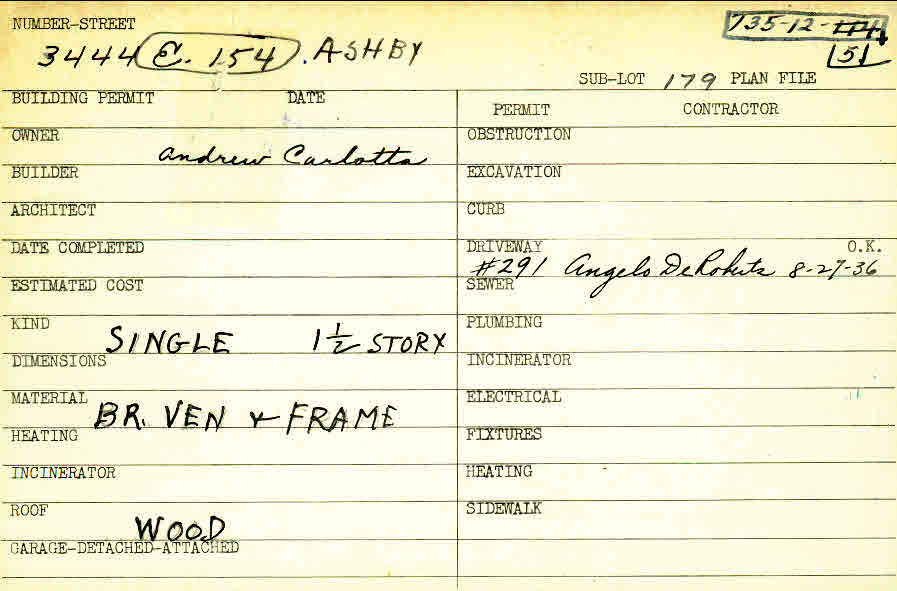 NUMBER-STREET
3444 E. 154 . ASHBY
735-12-114
151
SUB-LOT 179 PLAN FILE
BUILDING PERMIT DATE
PERMIT CONTRACTOR
OWNER
Andrew Carlotta
OBSTRUCTION
BUILDER
EXCAVATION
ARCHITECT
CURB
DATE COMPLETED
DRIVEWAY O.K.
#291 Angelo DeRoberts 8-27-36
ESTIMATED COST
SEWER
KIND
SINGLE 1 1/2 STORY
PLUMBING
DIMENSIONS
INCINERATOR
MATERIAL
BR. VEN & FRAME
ELECTRICAL
HEATING
FIXTURES
INCINERATOR
HEATING
ROOF
WOOD
SIDEWALK
GARAGE-DETACHED-ATTACHED